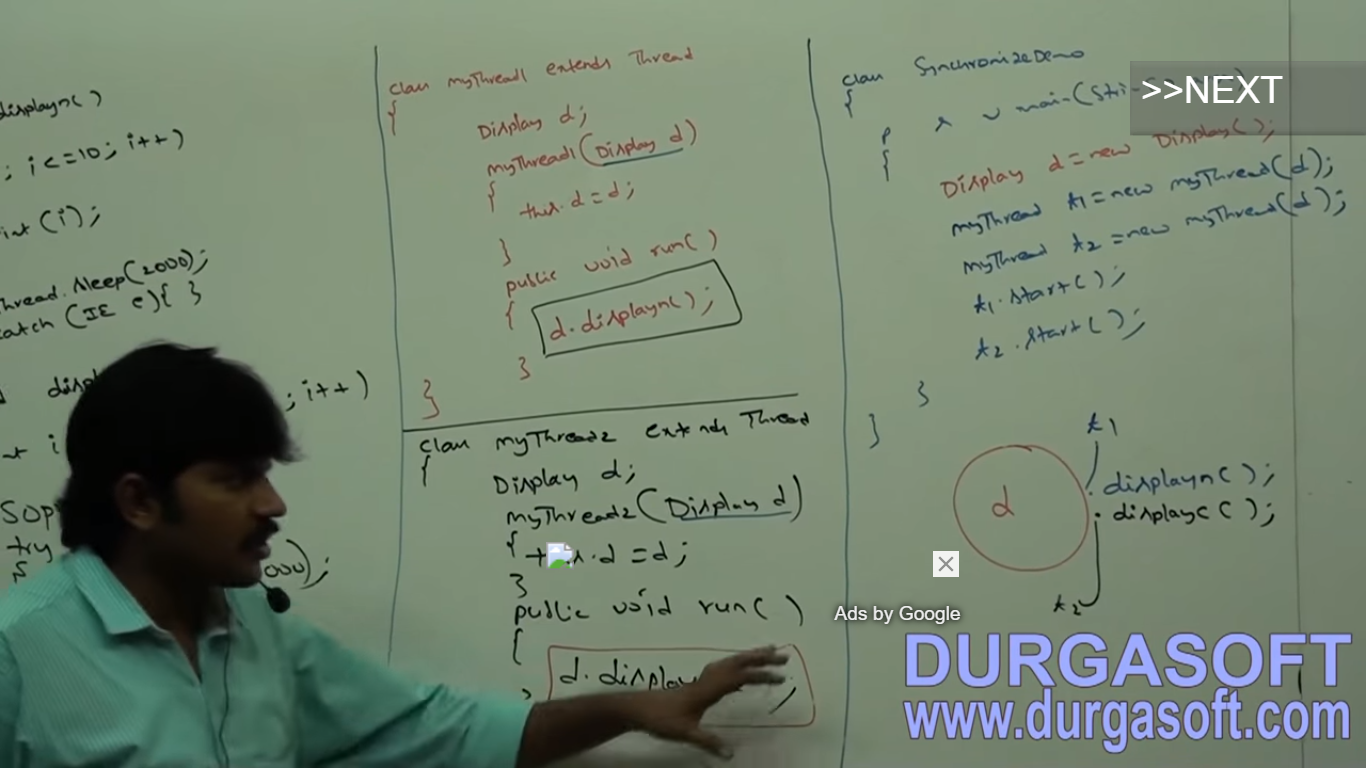 displayn()
; i<=10; i++)
int (i);
Thread.sleep(2000);
catch (IE e){ }
displ
; i++)
nt i
Sop
try
000);
class myThread1 extends Thread
{
Display d;
myThread1(Display d)
{
this.d=d;
}
public void run()
{
d.displayn();
}
}
class myThread2 extends Thread
{
Display d;
myThread2(Display d)
{
.d=d;
}
public void run()
{
d.display
class SynchronizeDemo
{
p s v main(Stri
{
Display d=new Display();
myThread t1=new myThread(d);
myThread t2=new myThread(d);
t1.start();
t2.start();
}
}
t1
d
.displayn();
.displayc();
t2
>>NEXT
Ads by Google
DURGASOFT
www.durgasoft.com